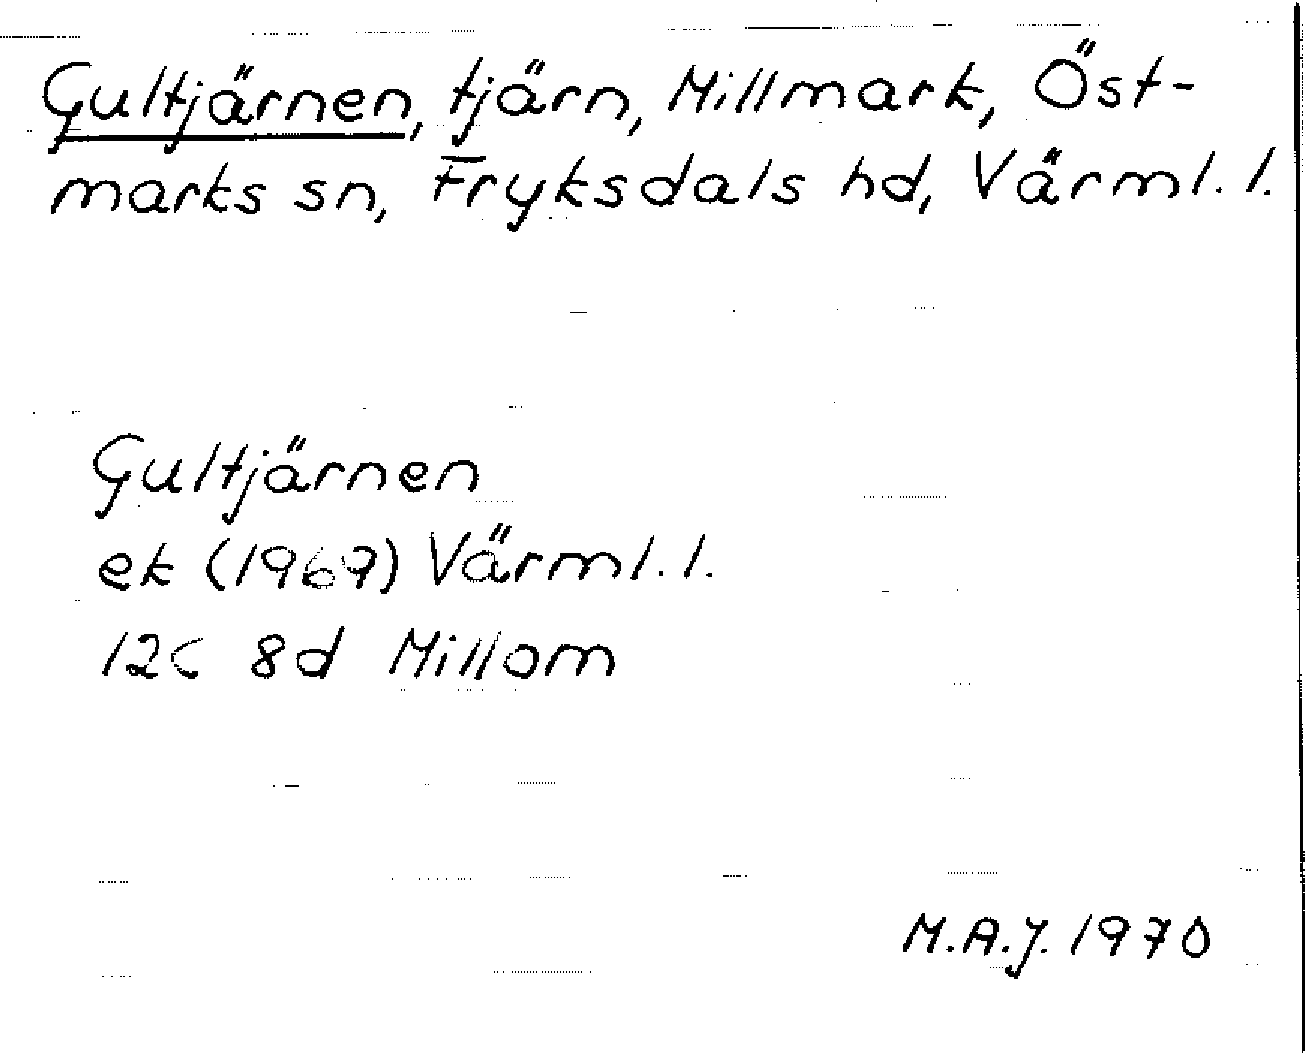 Gultjärnen, tjärn, Millmark, Öst-
marks sn, Fryksdals hd, Värml. l.
Gultjärnen
ek (1969) Värml. l.
12C 8d Millom
M.A.J. 1970